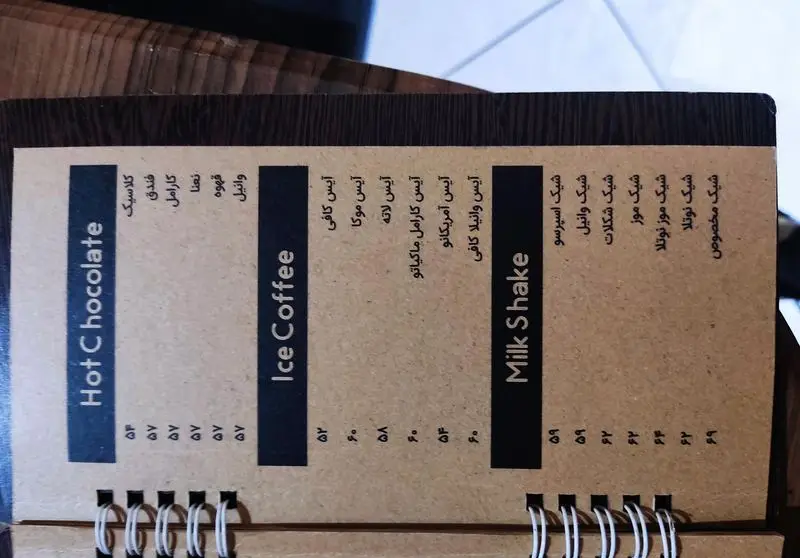 Hot Chocolate
کلاسیک ۵۴
فندق ۵۷
کارامل ۵۷
نعنا ۵۷
قهوه ۵۷
وانیل ۵۷
Ice Coffee
آیس کافی ۵۲
آیس موکا ۶۰
آیس لاته ۵۸
آیس کارامل ماکیاتو ۶۰
آیس امریکانو ۵۴
آیس وانیلا کافی ۶۰
Milk Shake
شیک اسپرسو ۵۹
شیک وانیل ۵۹
شیک شکلات ۶۲
شیک موز ۶۲
شیک موز نوتلا ۶۴
شیک نوتلا ۶۲
شیک مخصوص ۶۹